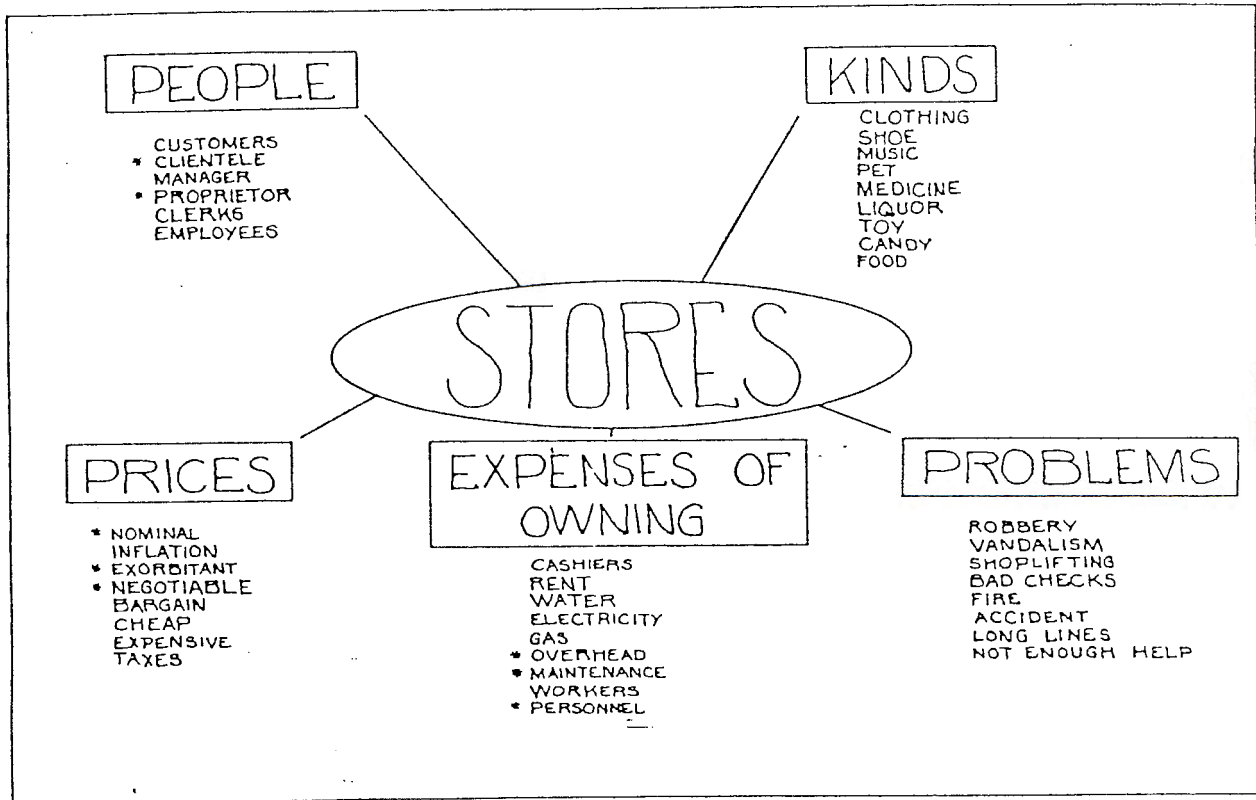 PEOPLE
CUSTOMERS
* CLIENTELE
MANAGER
* PROPRIETOR
CLERKS
EMPLOYEES
KINDS
CLOTHING
SHOE
MUSIC
PET
MEDICINE
LIQUOR
TOY
CANDY
FOOD
STORES
PRICES
* NOMINAL
INFLATION
* EXORBITANT
* NEGOTIABLE
BARGAIN
CHEAP
EXPENSIVE
TAXES
EXPENSES OF
OWNING
CASHIERS
RENT
WATER
ELECTRICITY
GAS
* OVERHEAD
* MAINTENANCE
WORKERS
* PERSONNEL
PROBLEMS
ROBBERY
VANDALISM
SHOPLIFTING
BAD CHECKS
FIRE
ACCIDENT
LONG LINES
NOT ENOUGH HELP